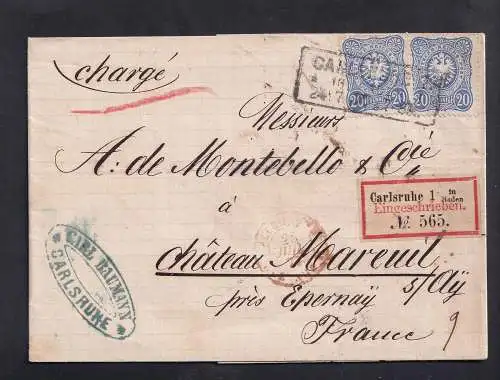 chargé
20 20 20
Messieurs
A: de Montebello & Cie
Carlsruhe 1 in Baden
Eingeschrieben.
№ 565.
à
château Mareuil
s/Aÿ
près Epernaÿ
France
9
CARL BAUMANN
* CARLSRUHE *